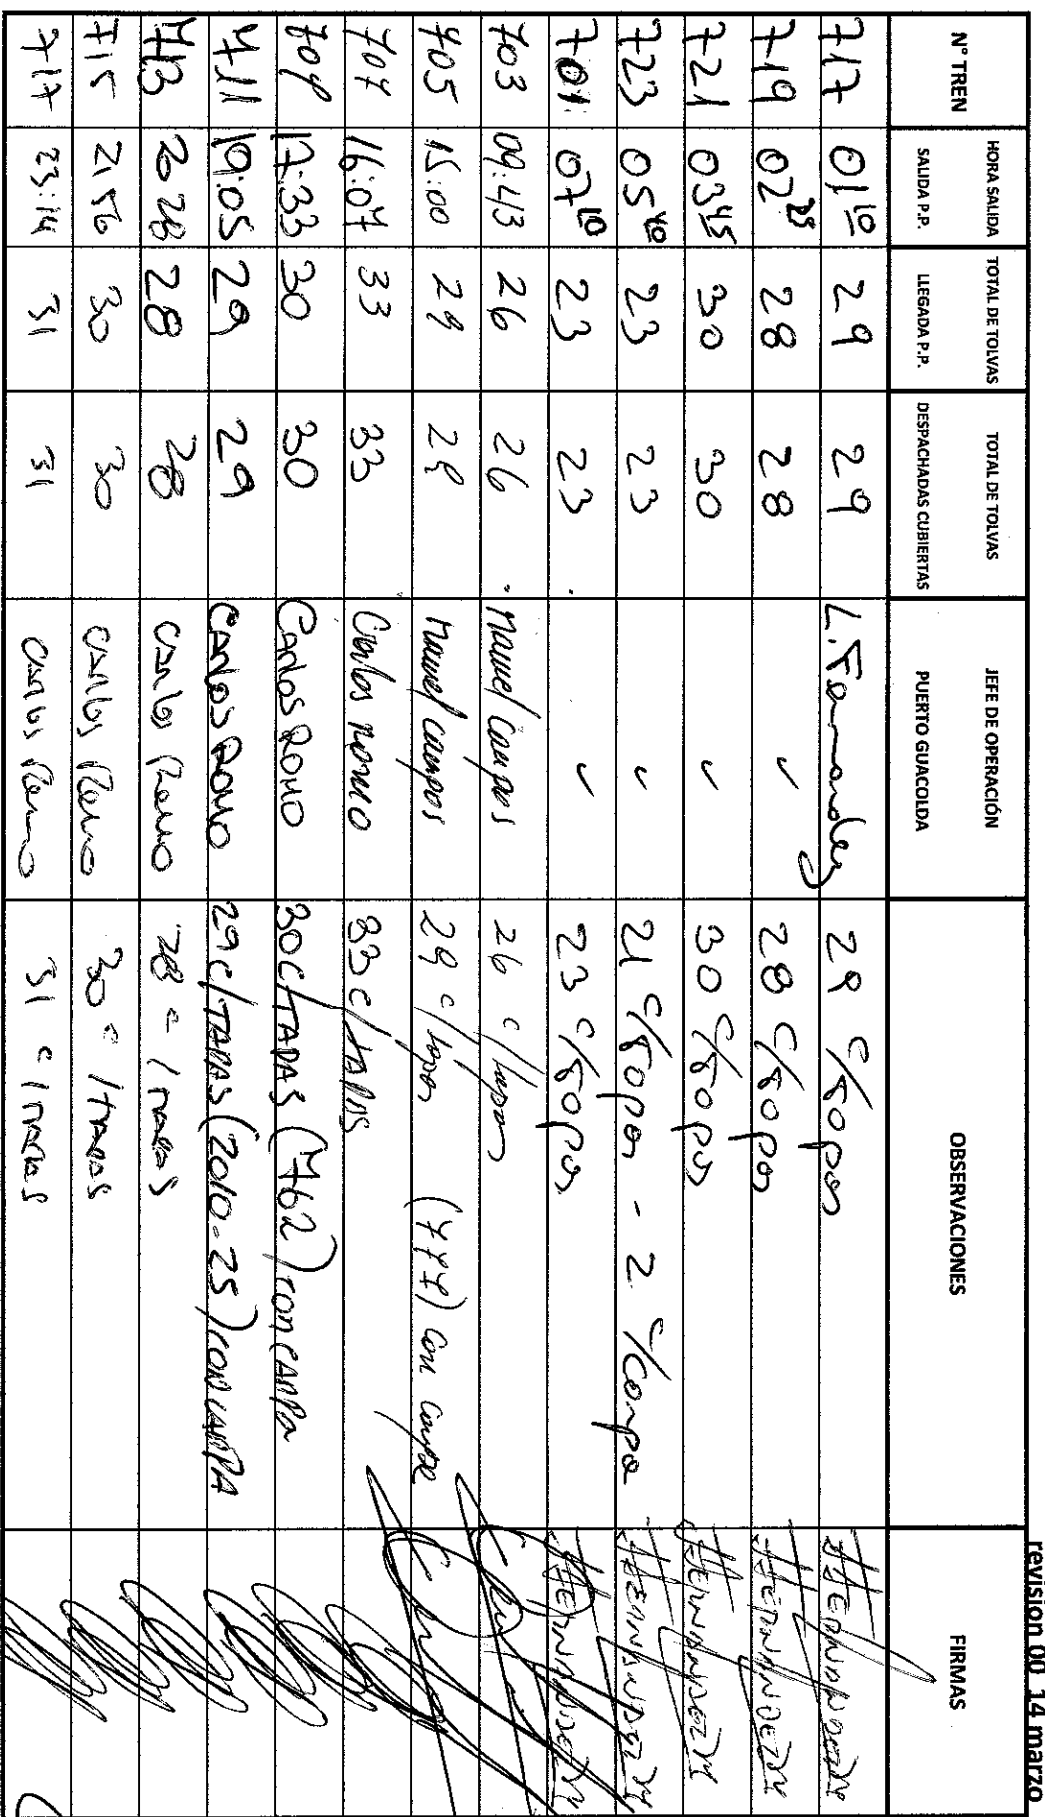 revision 00 14 marzo
N° TREN HORA SALIDA SALIDA P.P. TOTAL DE TOLVAS LLEGADA P.P. TOTAL DE TOLVAS DESPACHADAS CUBIERTAS JEFE DE OPERACIÓN PUERTO GUACOLDA OBSERVACIONES FIRMAS
717 01 10 29 29 L. Fernandez 29 c/topas
719 02 28 28 ✓ 28 c/topas
721 03 45 30 30 ✓ 30 c/topas
723 05 40 23 23 ✓ 21 c/topas - 2 c/Carpa
701 07 10 23 23 ✓ 23 c/topas
703 09:43 26 26 Manuel Campos 26 c/tapas
705 15:00 29 29 Manuel Campos 29 c/tapas (777) con carpa
707 16:07 33 33 Carlos Romo 33 c/tapas
709 17:33 30 30 Carlos Romo 30 c/TAPAS (762) con CARPA
711 19:05 29 29 Carlos Romo 29 c/TAPAS (2010-25) con CARPA
713 20 28 28 28 Carlos Romo 28 c/tapas
715 21 56 30 30 Carlos Romo 30 c/tapas
717 23:14 31 31 Carlos Romo 31 c/tapas